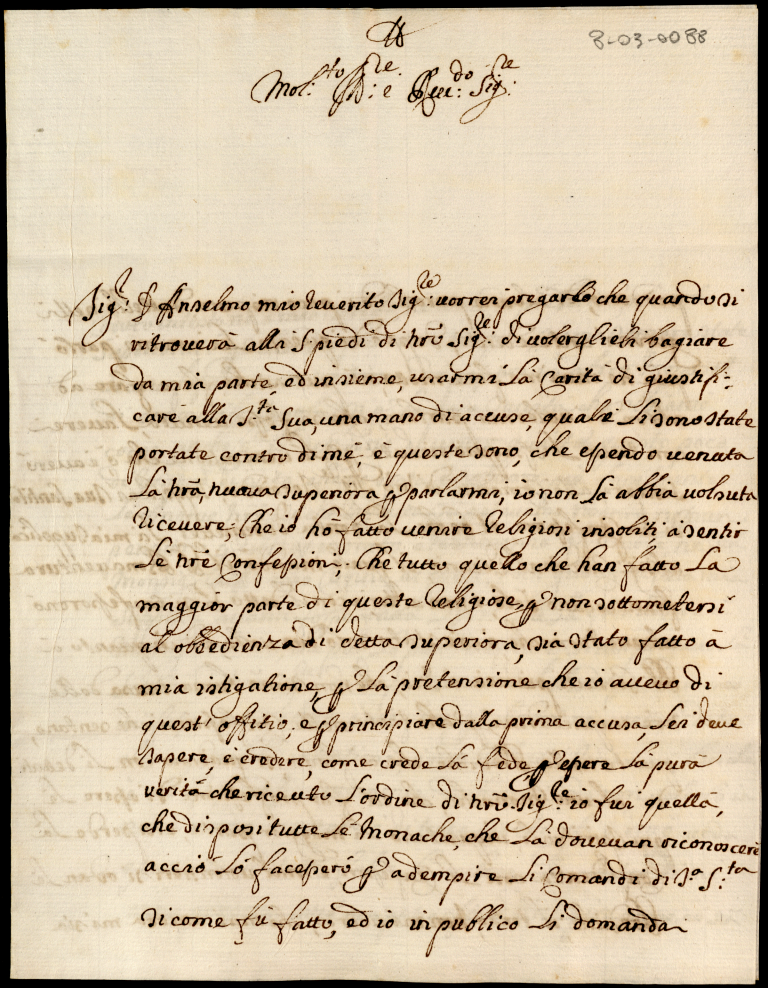 8-03-0088
Mol:to Ill:re e Reu:do Sig:re
Sig:r D Anselmo mio reuerito Sig:re uorrei pregarlo che quando si
ritrouerà alli S. piedi di nr̃o Sig:re di uolerglieli bagiare
da mia parte, ed insieme, usarmi La Carità di giustifi-
care alla S.tà Sua, una mano di accuse, quali Li sono state
portate contro di mè, è queste sono, che essendo uenuta
La nr̃a, nuoua superiora p parlarmi, io non La abbia uolsuta
riceuere; Che io hò fatto uenire religiosi insoliti à sentir
Le nr̃e Confessioni; Che tutto quello che han fatto La
maggior parte di queste religiose, p non sottometersi
al obbedienza di detta superiora, sia stato fatto à
mia istigatione, p La pretensione che io aueuo di
quest' offitio; e p principiare dalla prima accusa, Lei deue
sapere, è credere, come crede La fede, p essere La purà
verità che riceuto L'ordine di nr̃o Sig:re io fui quella,
che disposi tutte Le Monache, che La doueuan riconoscere
acciò Lò facessero p adempire Li Comandi di S.a S:tà
sicome fù fatto, ed io in publico Li domanda